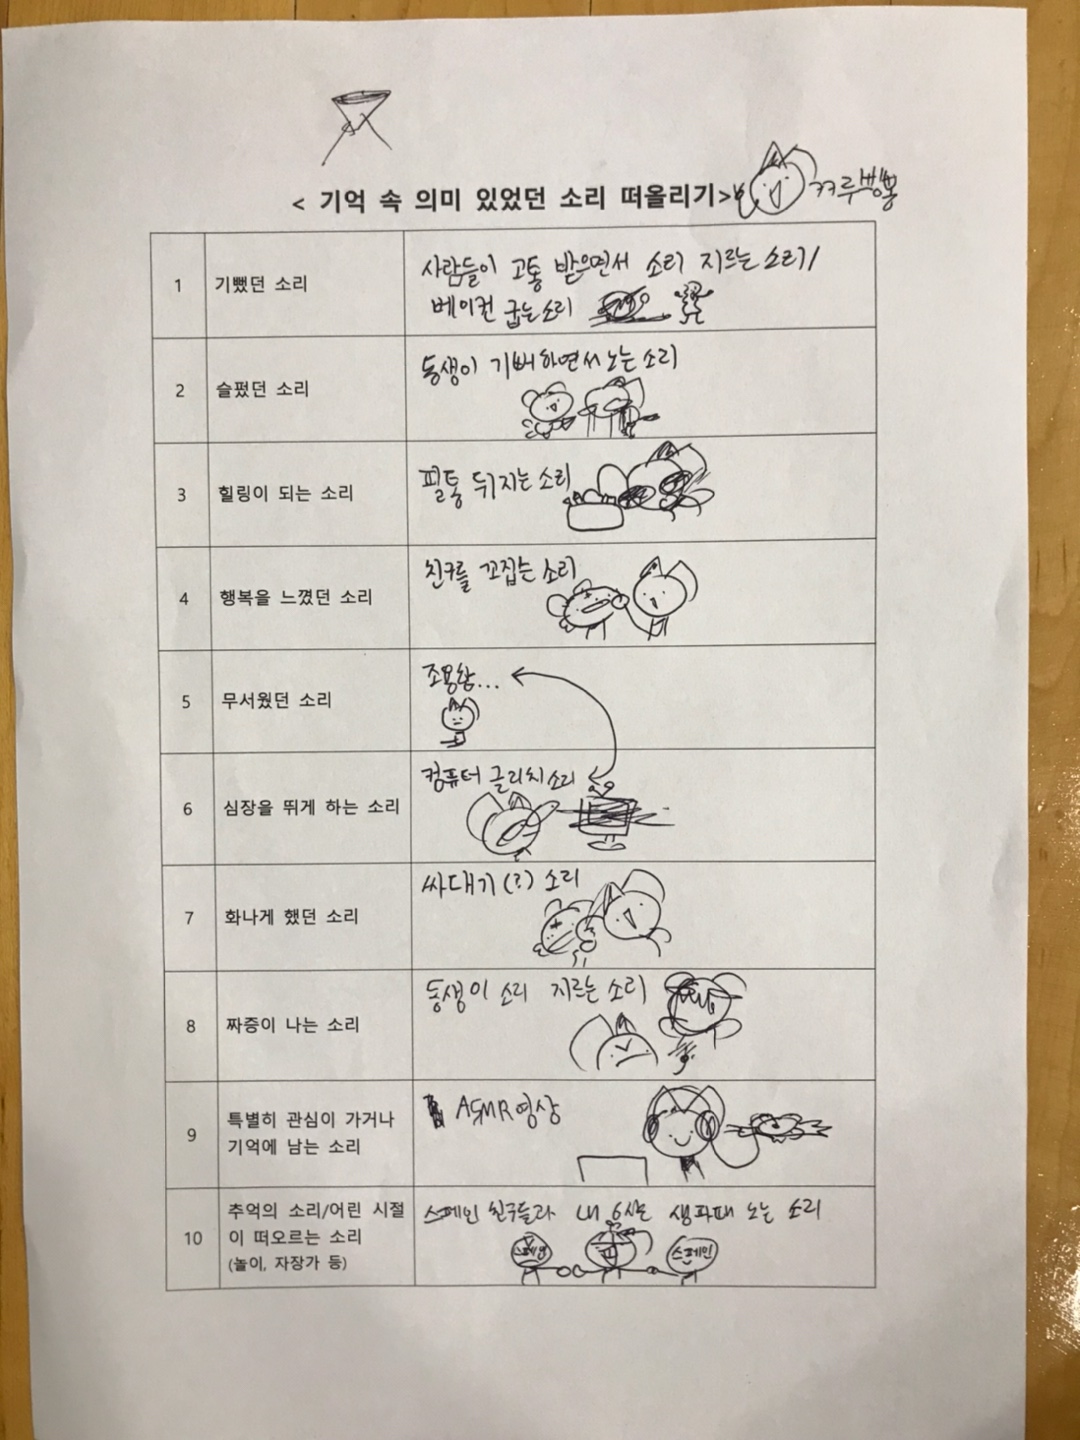 < 기억 속 의미 있었던 소리 떠올리기>
ㅋㅋ루삥뽕
1 기뻤던 소리 사람들이 고통 받으면서 소리 지르는 소리/
베이컨 굽는 소리
2 슬펐던 소리 동생이 기뻐하면서 노는 소리
3 힐링이 되는 소리 필통 뒤지는 소리
4 행복을 느꼈던 소리 친구를 꼬집는 소리
5 무서웠던 소리 조용함...
6 심장을 뛰게 하는 소리 컴퓨터 글리치 소리
7 화나게 했던 소리 싸대기(?) 소리
8 짜증이 나는 소리 동생이 소리 지르는 소리
9 특별히 관심이 가거나
기억에 남는 소리
ASMR 영상
10 추억의 소리/어린 시절
이 떠오르는 소리
(놀이, 자장가 등)
스페인 친구들과 내 6살 생파때 노는 소리
스페인
스페인